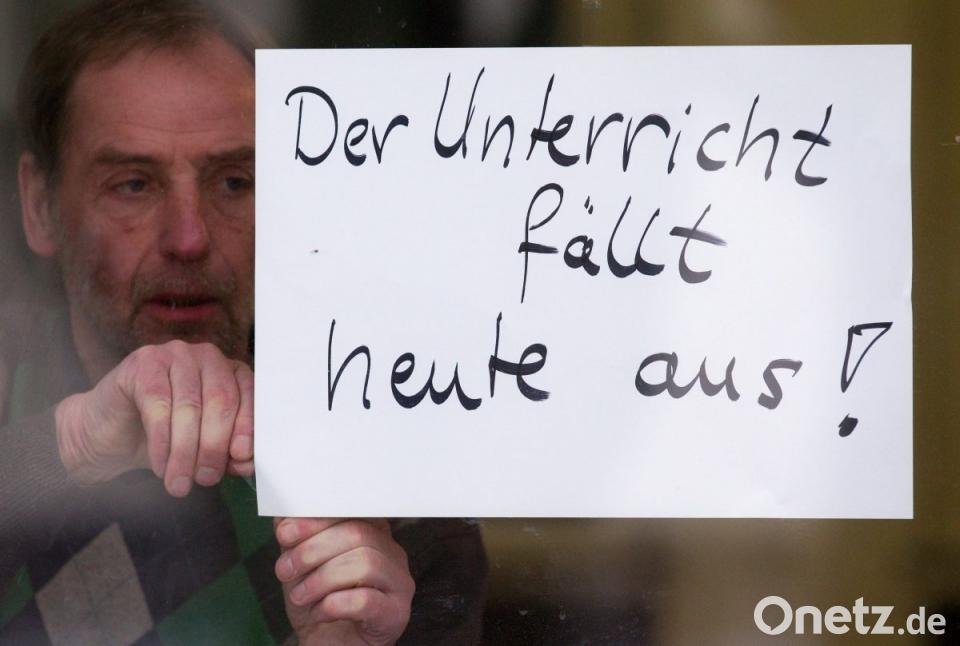 Der Unterricht
fällt
heute aus!
Onetz.de